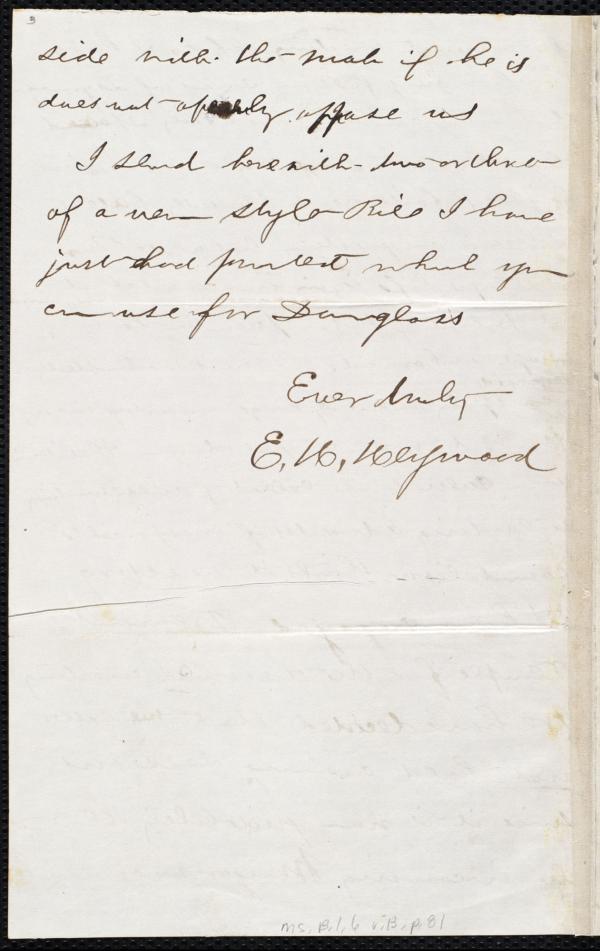 3
side with the mob if he is
does not openly oppose us
I send herewith two or three
of a new style Bill I have
just had printed which you
can use for Douglass
Ever truly
E. H. Heywood
Ms. B.1.6 v.13, p. 81